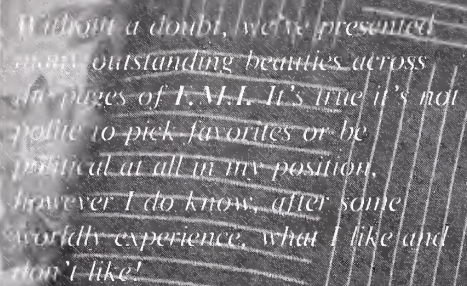 Without a doubt, we've presented
many outstanding beauties across
the pages of F.M.I. It's true it's not
polite to pick favorites or be
political at all in my position,
however I do know, after some
worldly experience, what I like and
don't like!